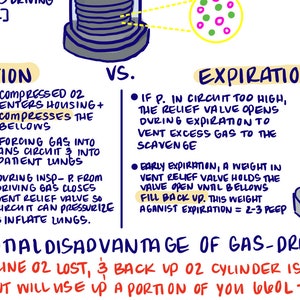 S DRIVING
]
ION VS. EXPIRATIO
COMPRESSED O2
ENTERS HOUSING +
COMPRESSES THE
BELLOWS
FORCING GAS INTO
ANS CIRCUIT & INTO
PATIENT LUNGS
DURING INSP- P. FROM
DRIVING GAS CLOSES
VENT RELIEF VALVE SO
CIRCUIT CAN PRESSURIZE
& INFLATE LUNGS.
• IF P. IN CIRCUIT TOO HIGH,
THE RELIEF VALVE OPENS
DURING EXPIRATION TO
VENT EXCESS GAS TO THE
SCAVENGE
• EARLY EXPIRATION, A WEIGHT IN
VENT RELIEF VALVE HOLDS THE
VALVE OPEN UNTIL BELLOWS
FILL BACK UP. THIS WEIGHT
AGAINST EXPIRATION = 2-3 PEEP
NAL DISADVANTAGE OF GAS-DR
LINE O2 LOST, & BACK UP O2 CYLINDER IS
NT WILL USE UP A PORTION OF YOU 660L